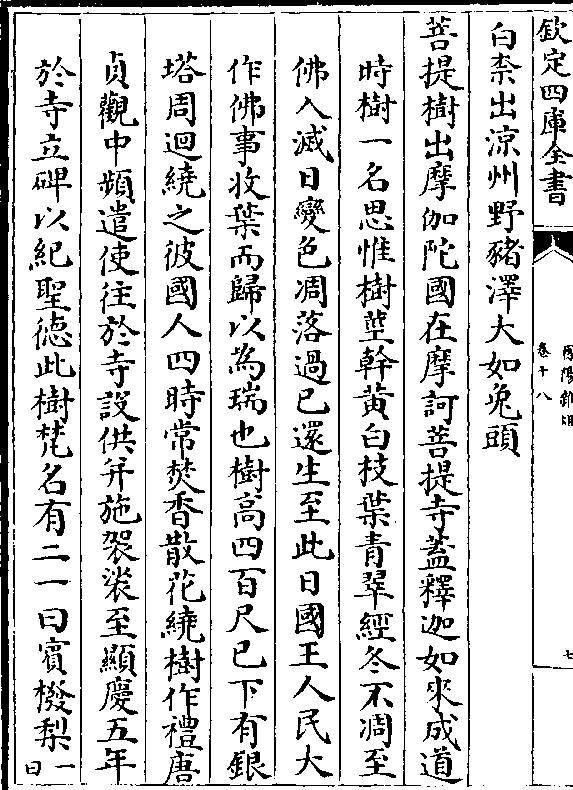 欽定四庫全書
酉陽雜俎
卷十八
七
白柰出涼州野豬澤大如兔頭
菩提樹出摩伽陀國在摩訶菩提寺蓋釋迦如來成道
時樹一名思惟樹莖幹黄白枝葉青翠經冬不凋至
佛入滅日變色凋落過已還生至此日國王人民大
作佛事收葉而歸以為瑞也樹高四百尺已下有銀
塔周迴繞之彼國人四時常焚香散花繞樹作禮唐
貞觀中頻遣使往於寺設供并施袈裟至顯慶五年
於寺立碑以紀聖德此樹梵名有二一曰賓撥梨一
曰